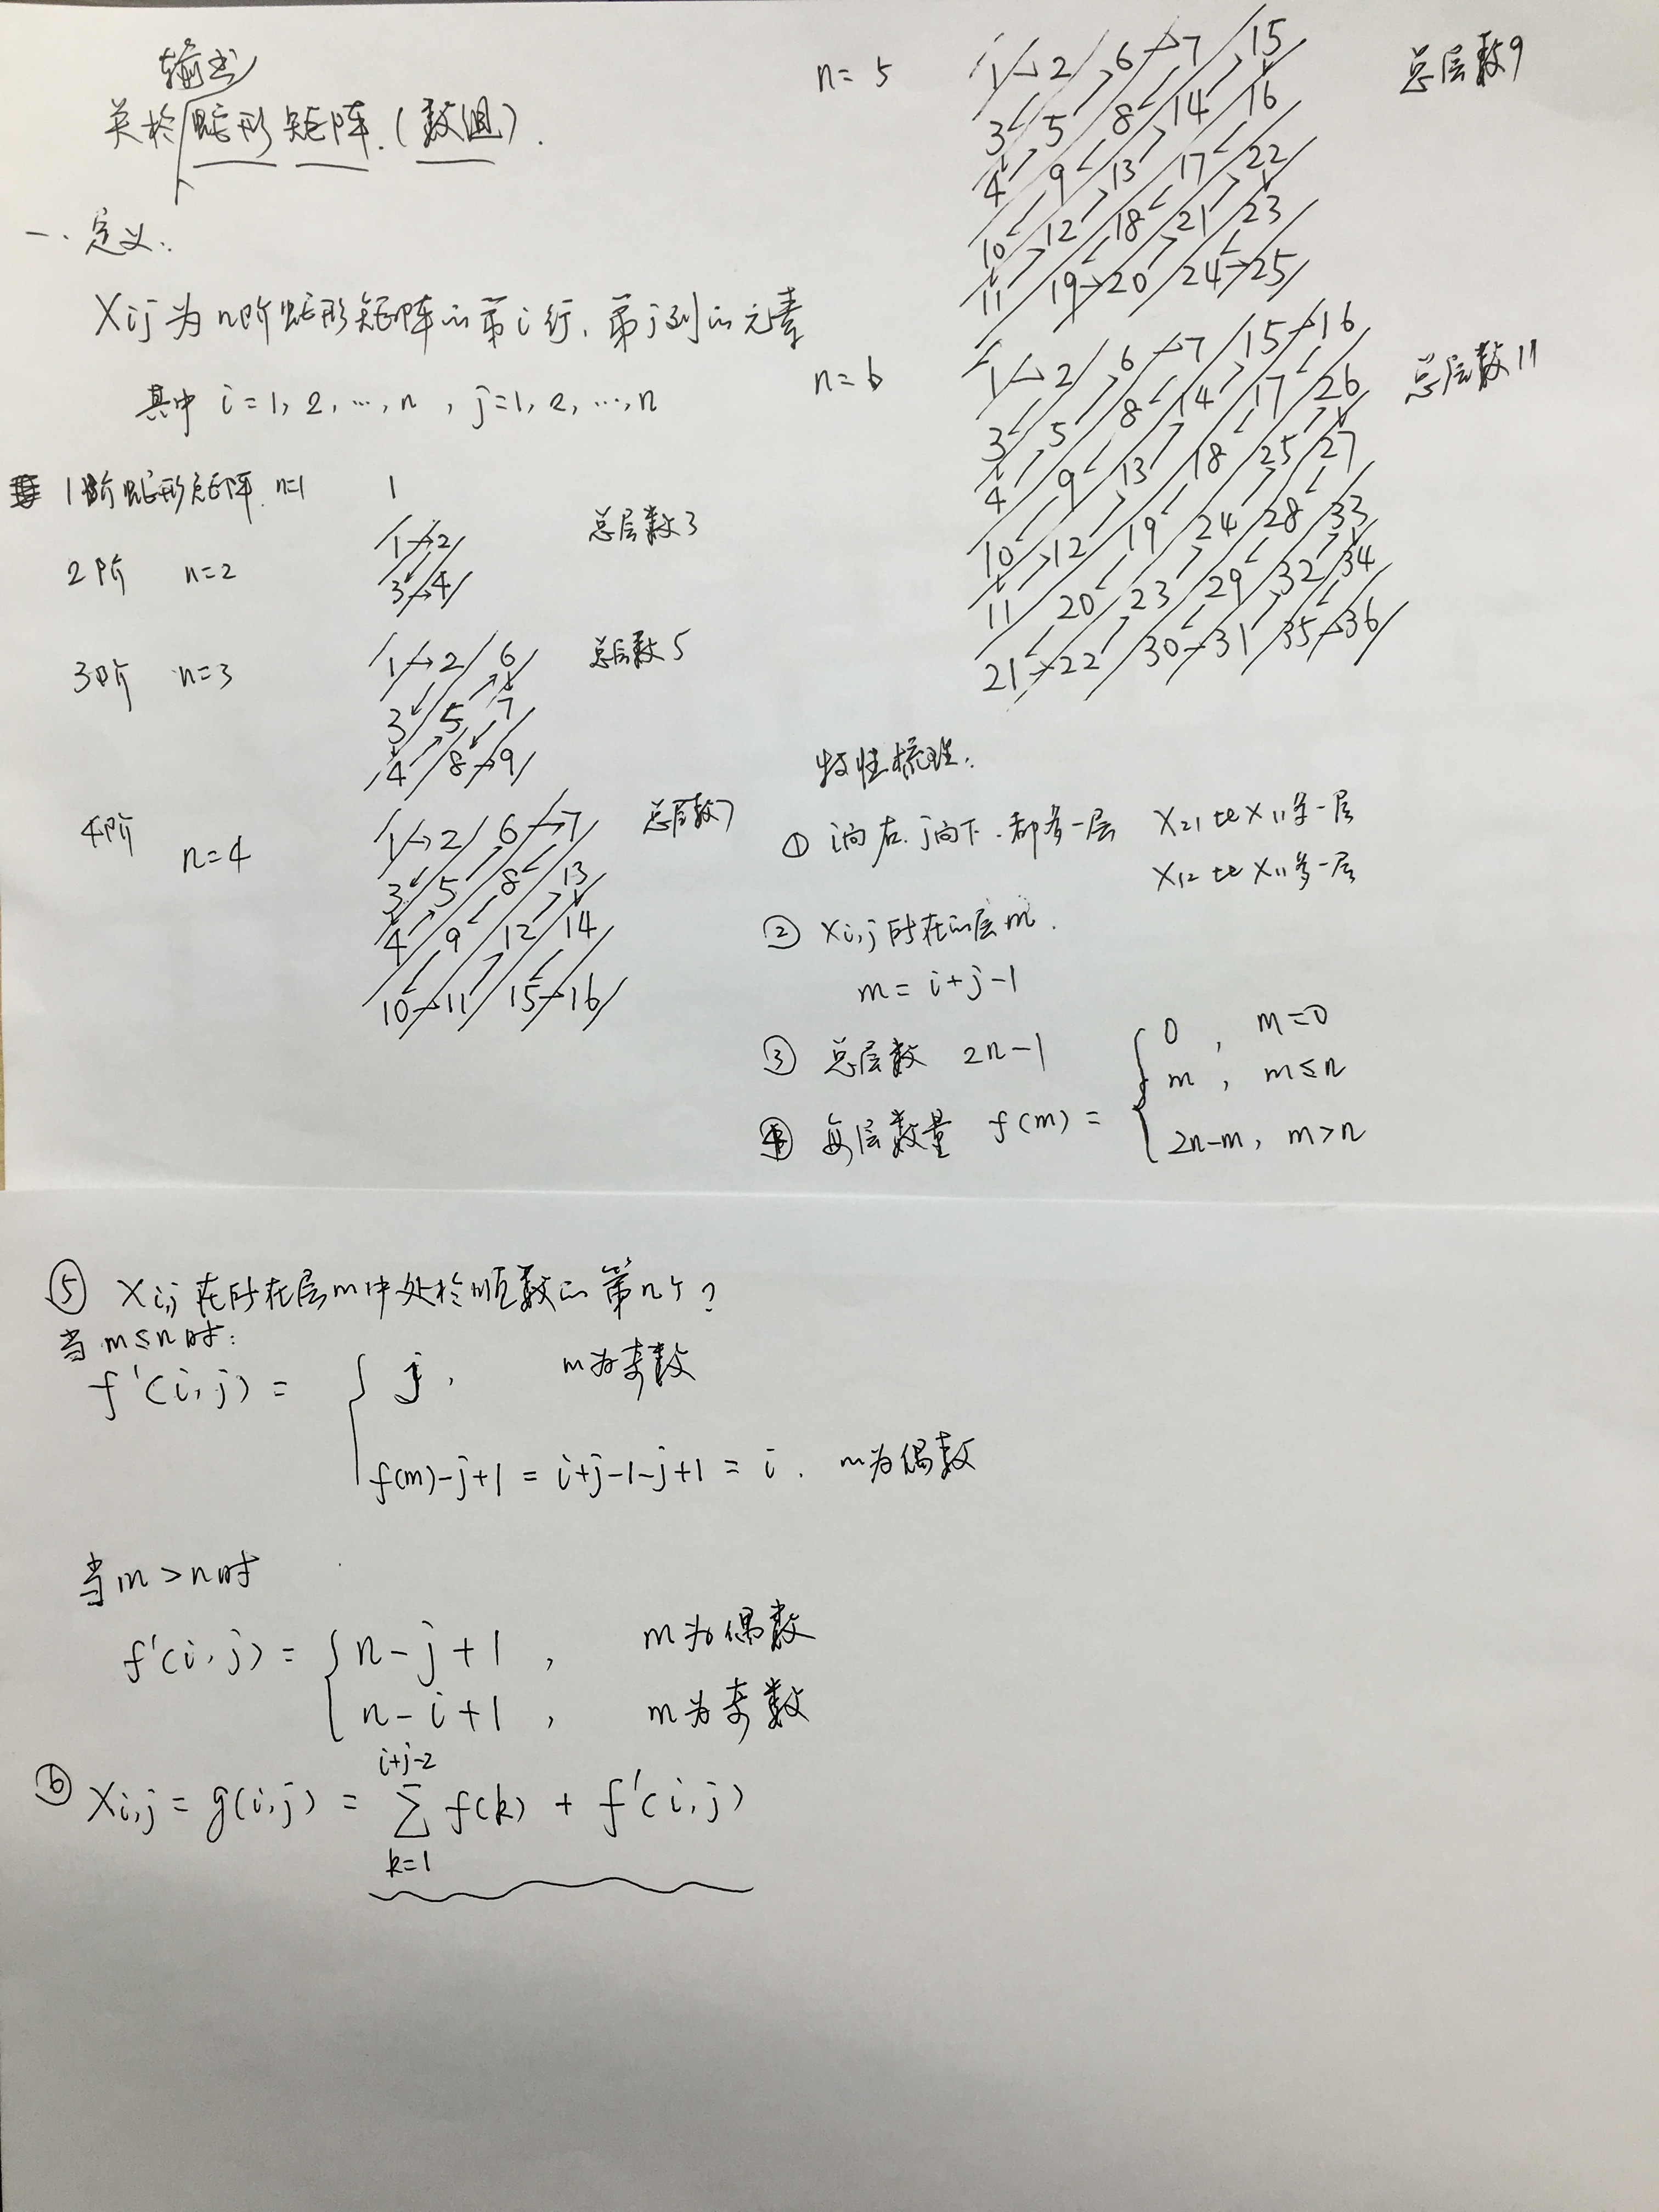 输出
关于蛇形矩阵.(数组).
一.定义:
Xij为n阶蛇形矩阵的第i行,第j列的元素
其中 i=1,2,…,n , j=1,2,…,n
1阶蛇形矩阵 n=1 1
2阶 n=2 总层数3
1→2
3→4
3阶 n=3 总层数5
1→2 6
3 5 7
4 8→9
4阶 n=4 总层数7
1→2 6→7
3 5 8 13
4 9 12 14
10→11 15→16
n=5 总层数9
1→2 6→7 15
3 5 8 14 16
4 9 13 17 22
10 12 18 21 23
11 19→20 24→25
n=6 总层数11
1→2 6→7 15→16
3 5 8 14 17 26
4 9 13 18 25 27
10 12 19 24 28 33
11 20 23 29 32 34
21→22 30→31 35→36
特性梳理.
① i向右.j向下.都多一层 X21比X11多一层
X12比X11多一层
② Xi,j所在的层m.
m=i+j-1
③ 总层数 2n-1
④ 每层数量 f(m)= { 0 , m=0
m , m≤n
2n-m, m>n
⑤ Xi,j在所在层m中处于顺数的第n个?
当m≤n时:
f'(i,j)= { j, m为奇数
f(m)-j+1=i+j-1-j+1=i. m为偶数
当m>n时
f'(i,j)= { n-j+1 , m为偶数
n-i+1 , m为奇数
⑥ Xi,j=g(i,j)= i+j-2 ∑ k=1 f(k) + f'(i,j)